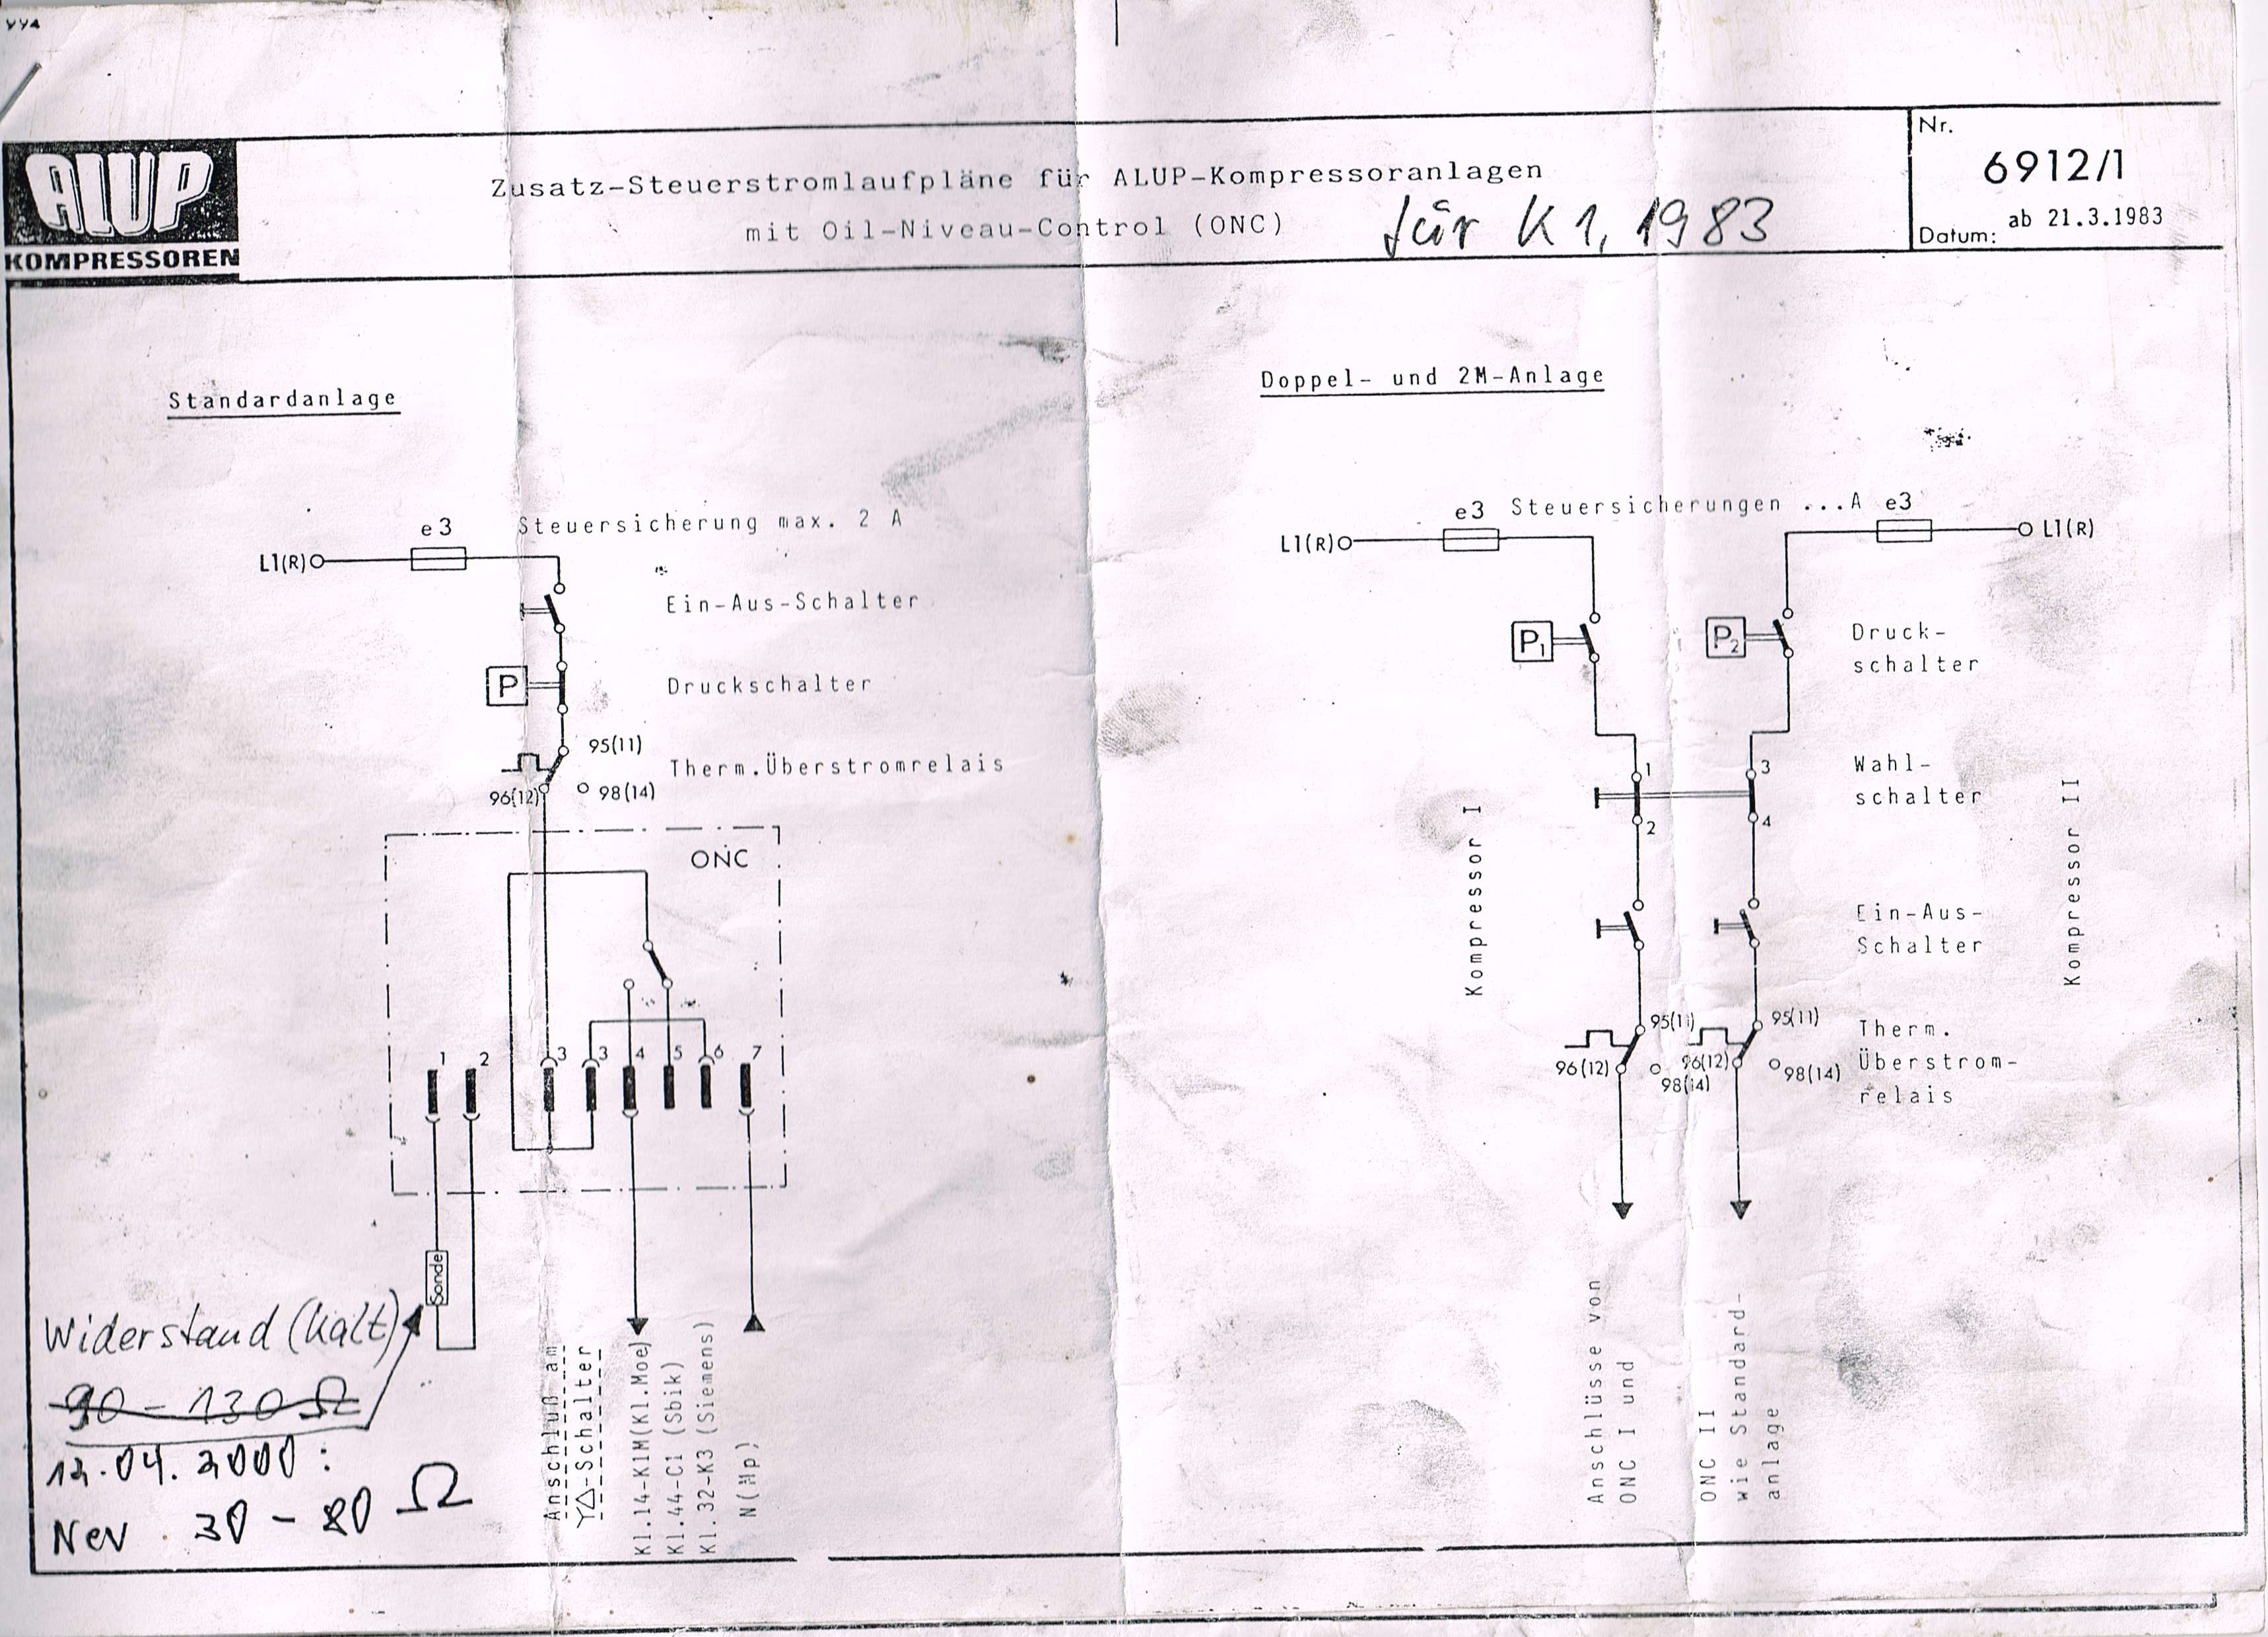 ALUP
KOMPRESSOREN
Zusatz-Steuerstromlaufpläne für ALUP-Kompressoranlagen
mit Oil-Niveau-Control (ONC)
für K1, 1983
Nr.
6912/1
Datum: ab 21.3.1983
Standardanlage
e3 Steuersicherung max. 2 A
L1(R)
Ein-Aus-Schalter
P Druckschalter
95(11)
Therm.Überstromrelais
96(12) 98(14)
ONC
1 2 3 3 4 5 6 7
Sonde
Widerstand (kalt)
90 - 130 Ω
12.04.2000:
Neu 30 - 80 Ω
Anschluß am
Y△-Schalter
Kl.14-K1M(Kl.Moe)
Kl.44-C1 (Sbik)
Kl.32-K3 (Siemens)
N(Mp)
Doppel- und 2M-Anlage
e3 Steuersicherungen ...A e3
L1(R) L1(R)
P1 P2 Druck-
schalter
1 3 Wahl-
schalter
2 4
Kompressor I
Kompressor II
Ein-Aus-
Schalter
95(11) 95(11) Therm.
96(12) 96(12) Überstrom-
98(14) 98(14) relais
Anschlüsse von
ONC I und
ONC II
wie Standard-
anlage